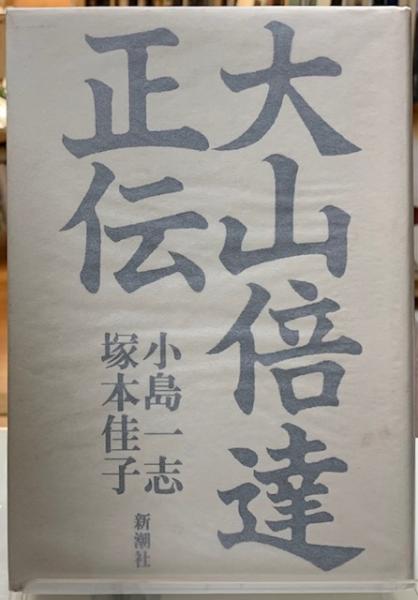 大山倍達
正伝
小島一志
塚本佳子
新潮社